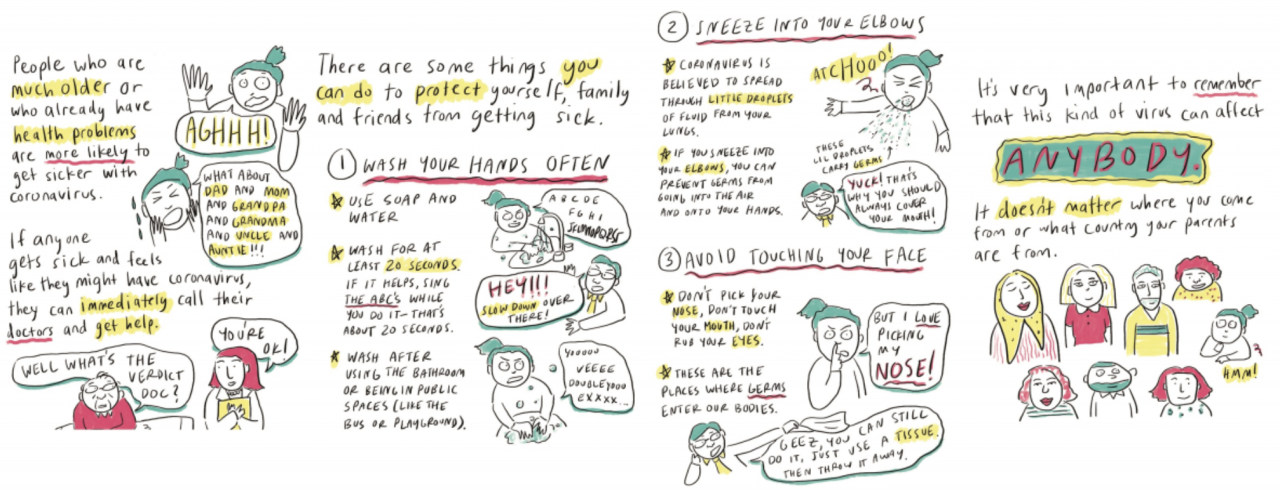 People who are
much older or
who already have
health problems
are more likely to
get sicker with
coronavirus.
AGHHH!
WHAT ABOUT
DAD AND MOM
AND GRANDPA
AND GRANDMA
AND UNCLE AND
AUNTIE!!!
If anyone
gets sick and feels
like they might have coronavirus,
they can immediately call their
doctors and get help.
YOU'RE
OK!
WELL WHAT'S THE
VERDICT
DOC?
There are some things you
can do to protect yourself, family
and friends from getting sick.
1 WASH YOUR HANDS OFTEN
USE SOAP AND
WATER
A B C D E
F G H I
JKLMNOPQRS
WASH FOR AT
LEAST 20 SECONDS.
IF IT HELPS, SING
THE ABC'S WHILE
YOU DO IT - THAT'S
ABOUT 20 SECONDS.
HEY!!!
SLOW DOWN OVER
THERE!
WASH AFTER
USING THE BATHROOM
OR BEING IN PUBLIC
SPACES (LIKE THE
BUS OR PLAYGROUND).
YOUUUU
VEEEE
DOUBLEYOUU
EXXXX...
2 SNEEZE INTO YOUR ELBOWS
CORONAVIRUS IS
BELIEVED TO SPREAD
THROUGH LITTLE DROPLETS
OF FLUID FROM YOUR
LUNGS.
ATCHOOO!
THESE
LIL DROPLETS
CARRY GERMS
IF YOU SNEEZE INTO
YOUR ELBOWS, YOU CAN
PREVENT GERMS FROM
GOING INTO THE AIR
AND ONTO YOUR HANDS.
YUCK! THAT'S
WHY YOU SHOULD
ALWAYS COVER
YOUR MOUTH!
3 AVOID TOUCHING YOUR FACE
DON'T PICK YOUR
NOSE, DON'T TOUCH
YOUR MOUTH, DON'T
RUB YOUR EYES.
BUT I LOVE
PICKING
MY
NOSE!
THESE ARE THE
PLACES WHERE GERMS
ENTER OUR BODIES.
GEEZ, YOU CAN STILL
DO IT, JUST USE A TISSUE.
THEN THROW IT AWAY.
It's very important to remember
that this kind of virus can affect
ANYBODY.
It doesn't matter where you come
from or what country your parents
are from.
HMM!